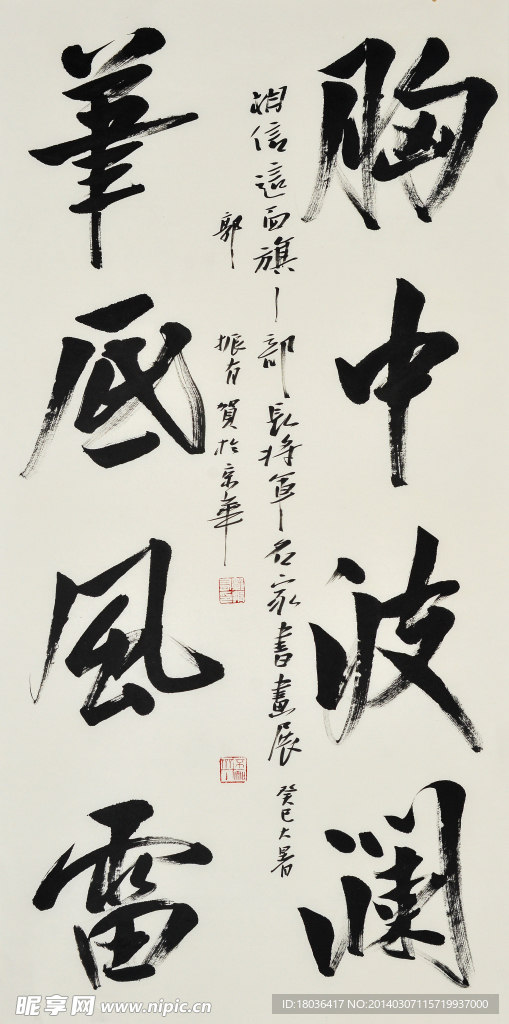 胸中波澜
筆底風雷
相信這面旗部長将軍名家書畫展 癸巳大暑
郭振有賀於京華
昵享网 www.nipic.cn
ID:18036417 NO:20140307115719937000